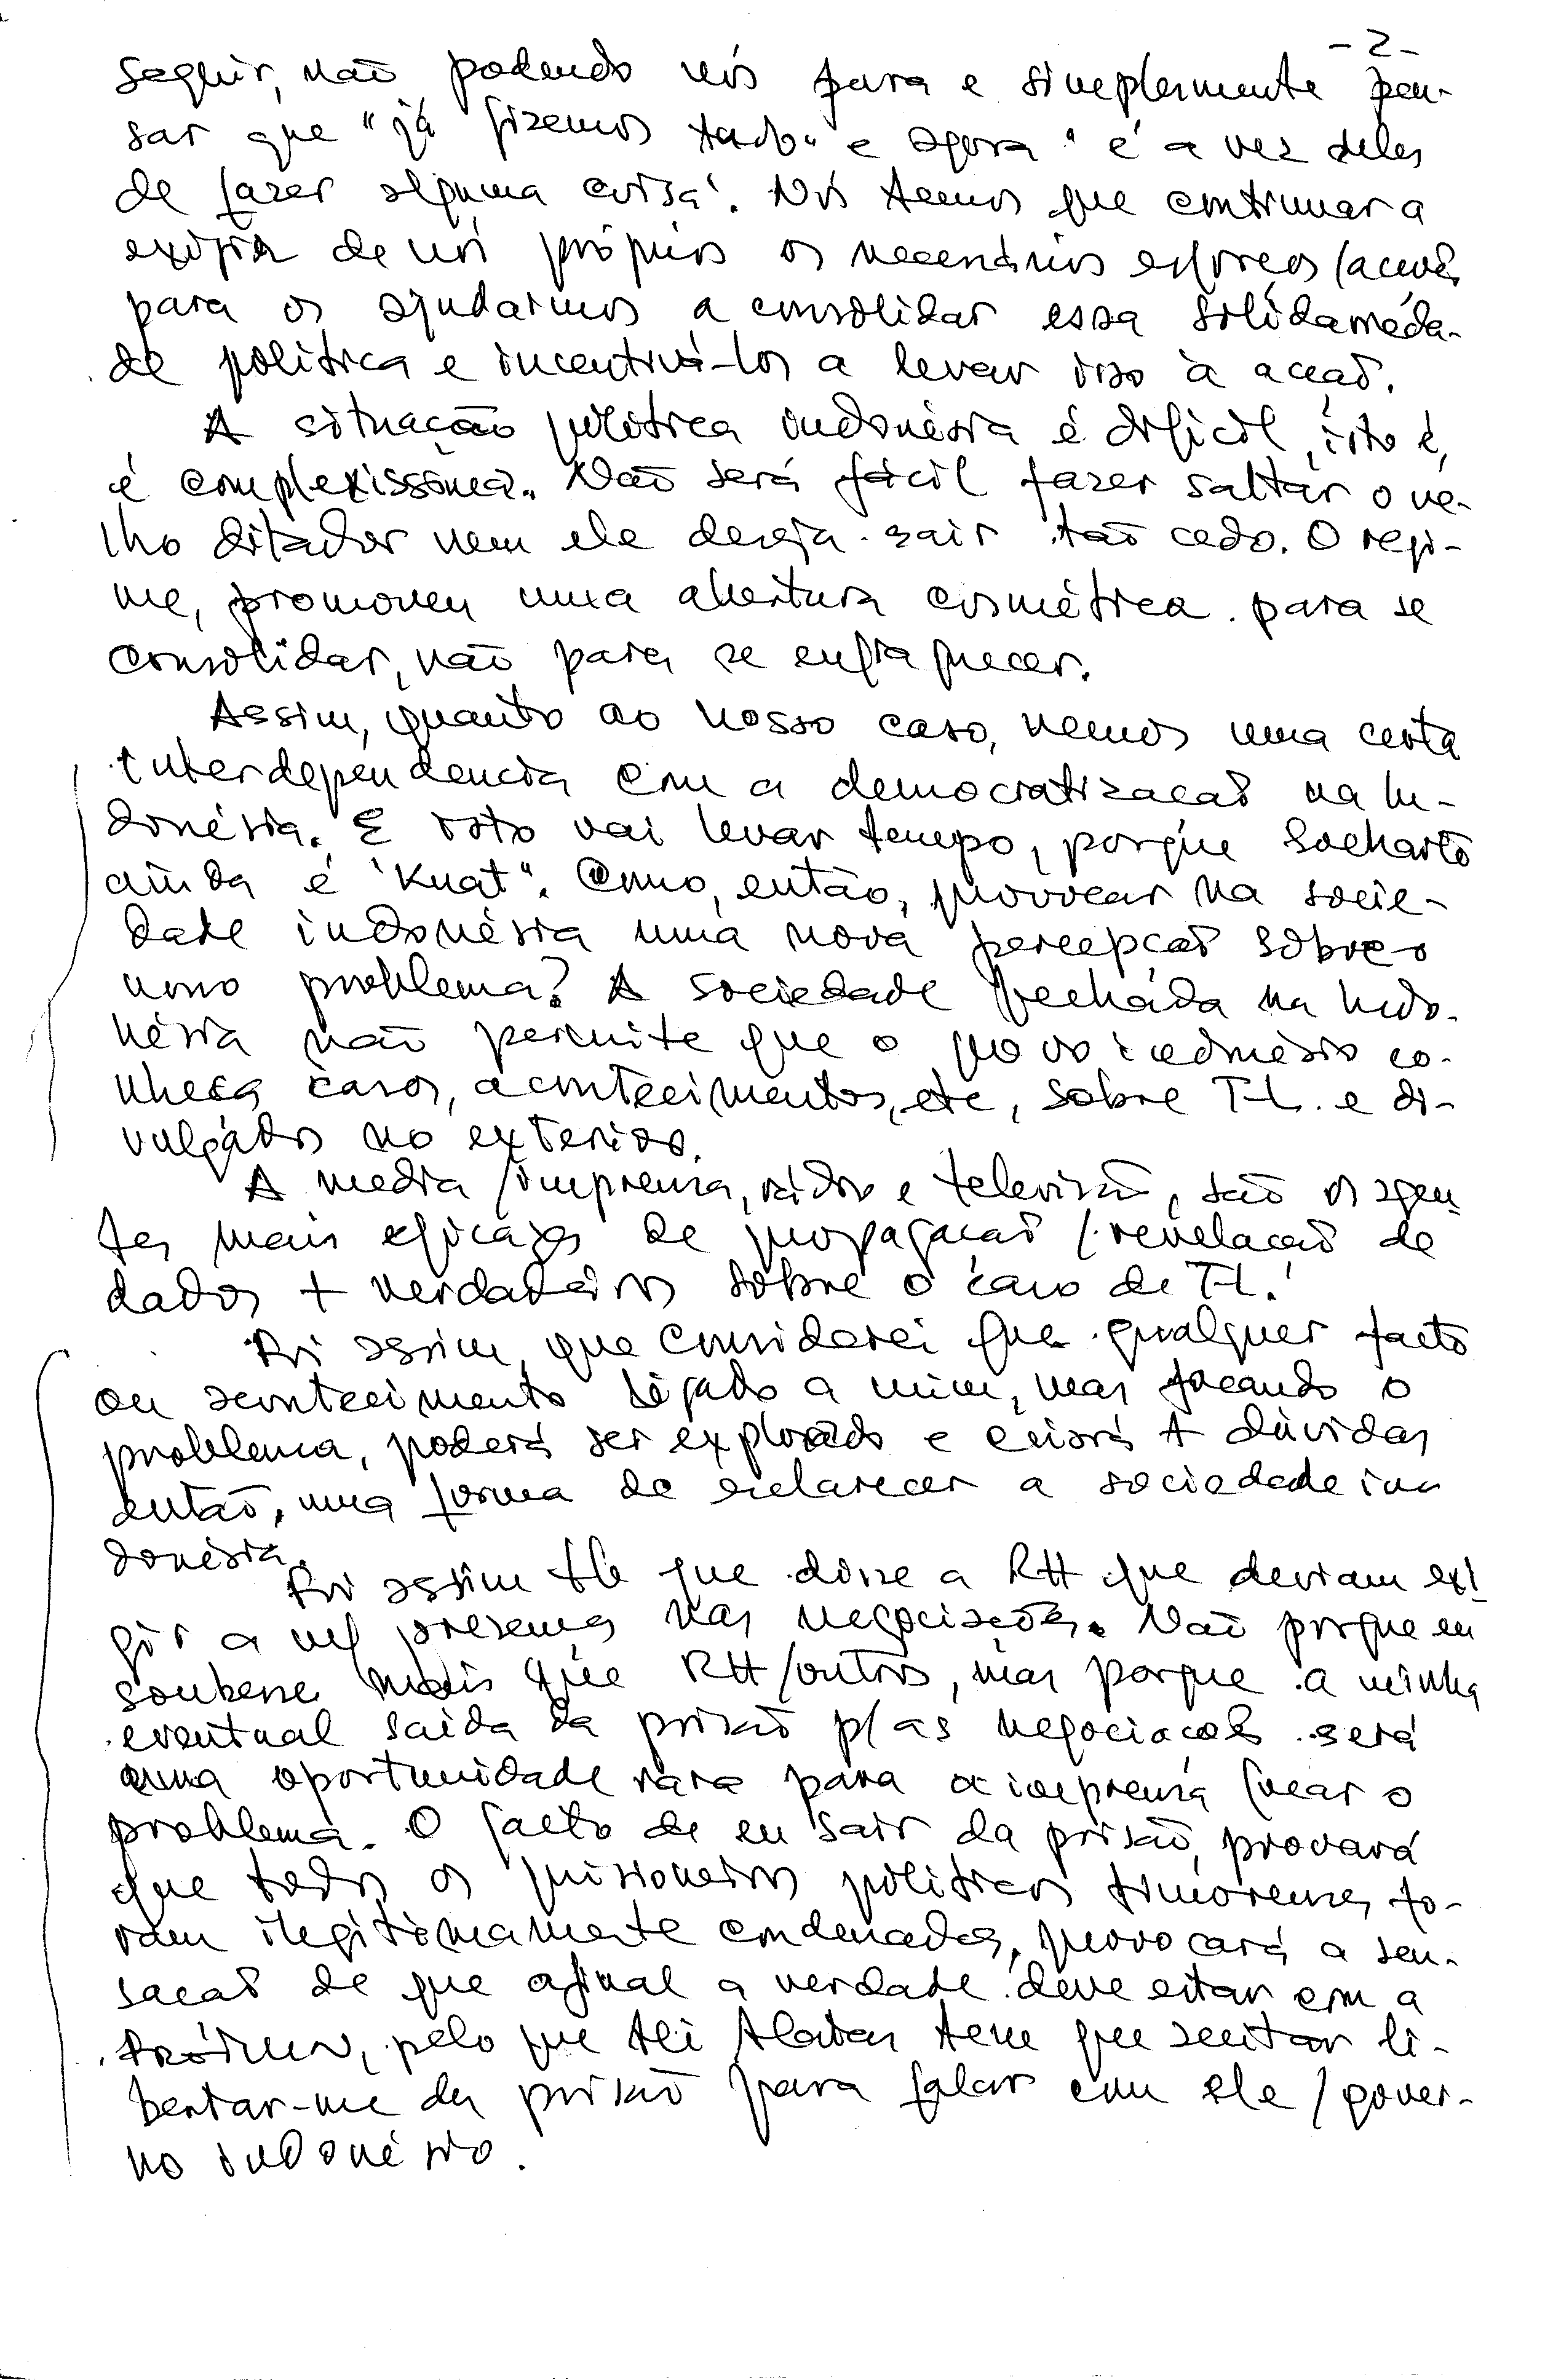 - 2 -
seguir, não podendo nós pura e simplesmente pen-
sar que "já fizemos tudo" e agora "é a vez deles
de fazer alguma coisa". Nós temos que continuar a
exigir de nós próprios os necessários esforços
para os ajudarmos a consolidar essa solidarieda-
de política e incentivá-los a levar isso à acção.
A situação política indonésia é difícil, isto é,
é complexíssima. Não será fácil fazer saltar o ve-
lho ditador nem ele deseja sair tão cedo. O regi-
me, promoveu uma abertura cosmética para se
consolidar, não para se enfraquecer.
Assim, quanto ao nosso caso, vemos uma certa
interdependencia com a democratizacaõ na In-
donésia. E isto vai levar tempo, porque Soeharto
ainda é "Kuat". Como, então, provocar na socie-
dade indonésia uma nova percepcaõ sobre o
nosso problema? A sociedade fechada na Indo-
nésia não permite que o povo indonésio co-
nheca casos, acontecimentos, etc, sobre T-L. e di-
vulgados no exterior.
A media /imprensa, rádio e televisão, são os agen-
tes mais eficazes de propagacaõ /revelacaõ de
dados + verdadeiros sobre o caso de T-L.
Foi assim, que considerei que qualquer facto
ou acontecimento ligado a mim, mas focando o
problema, poderá ser explorado e criará + dúvidas
entaõ, uma forma de esclarecer a sociedade in
donésia.
Foi assim tb que disse a RH que deviam exi
gir a presenca nas negociacões. Naõ porque eu
soubesse mais que RH /outros, mas porque a minha
eventual saída da prisaõ p/ as negociacoẽs será
uma oportunidade rara para a imprensa focar o
problema. O facto de eu sair da prisaõ, provará
que todos os prisioneiros políticos timorenses fo-
ram ilegitimamente condenados, provocará a sen-
sacaõ de que afinal a verdade deve estar com a
pelo que Ali Alatas teve que aceitar li-
bertar-me da prisaõ para falar com ele /gover-
no indonésio.